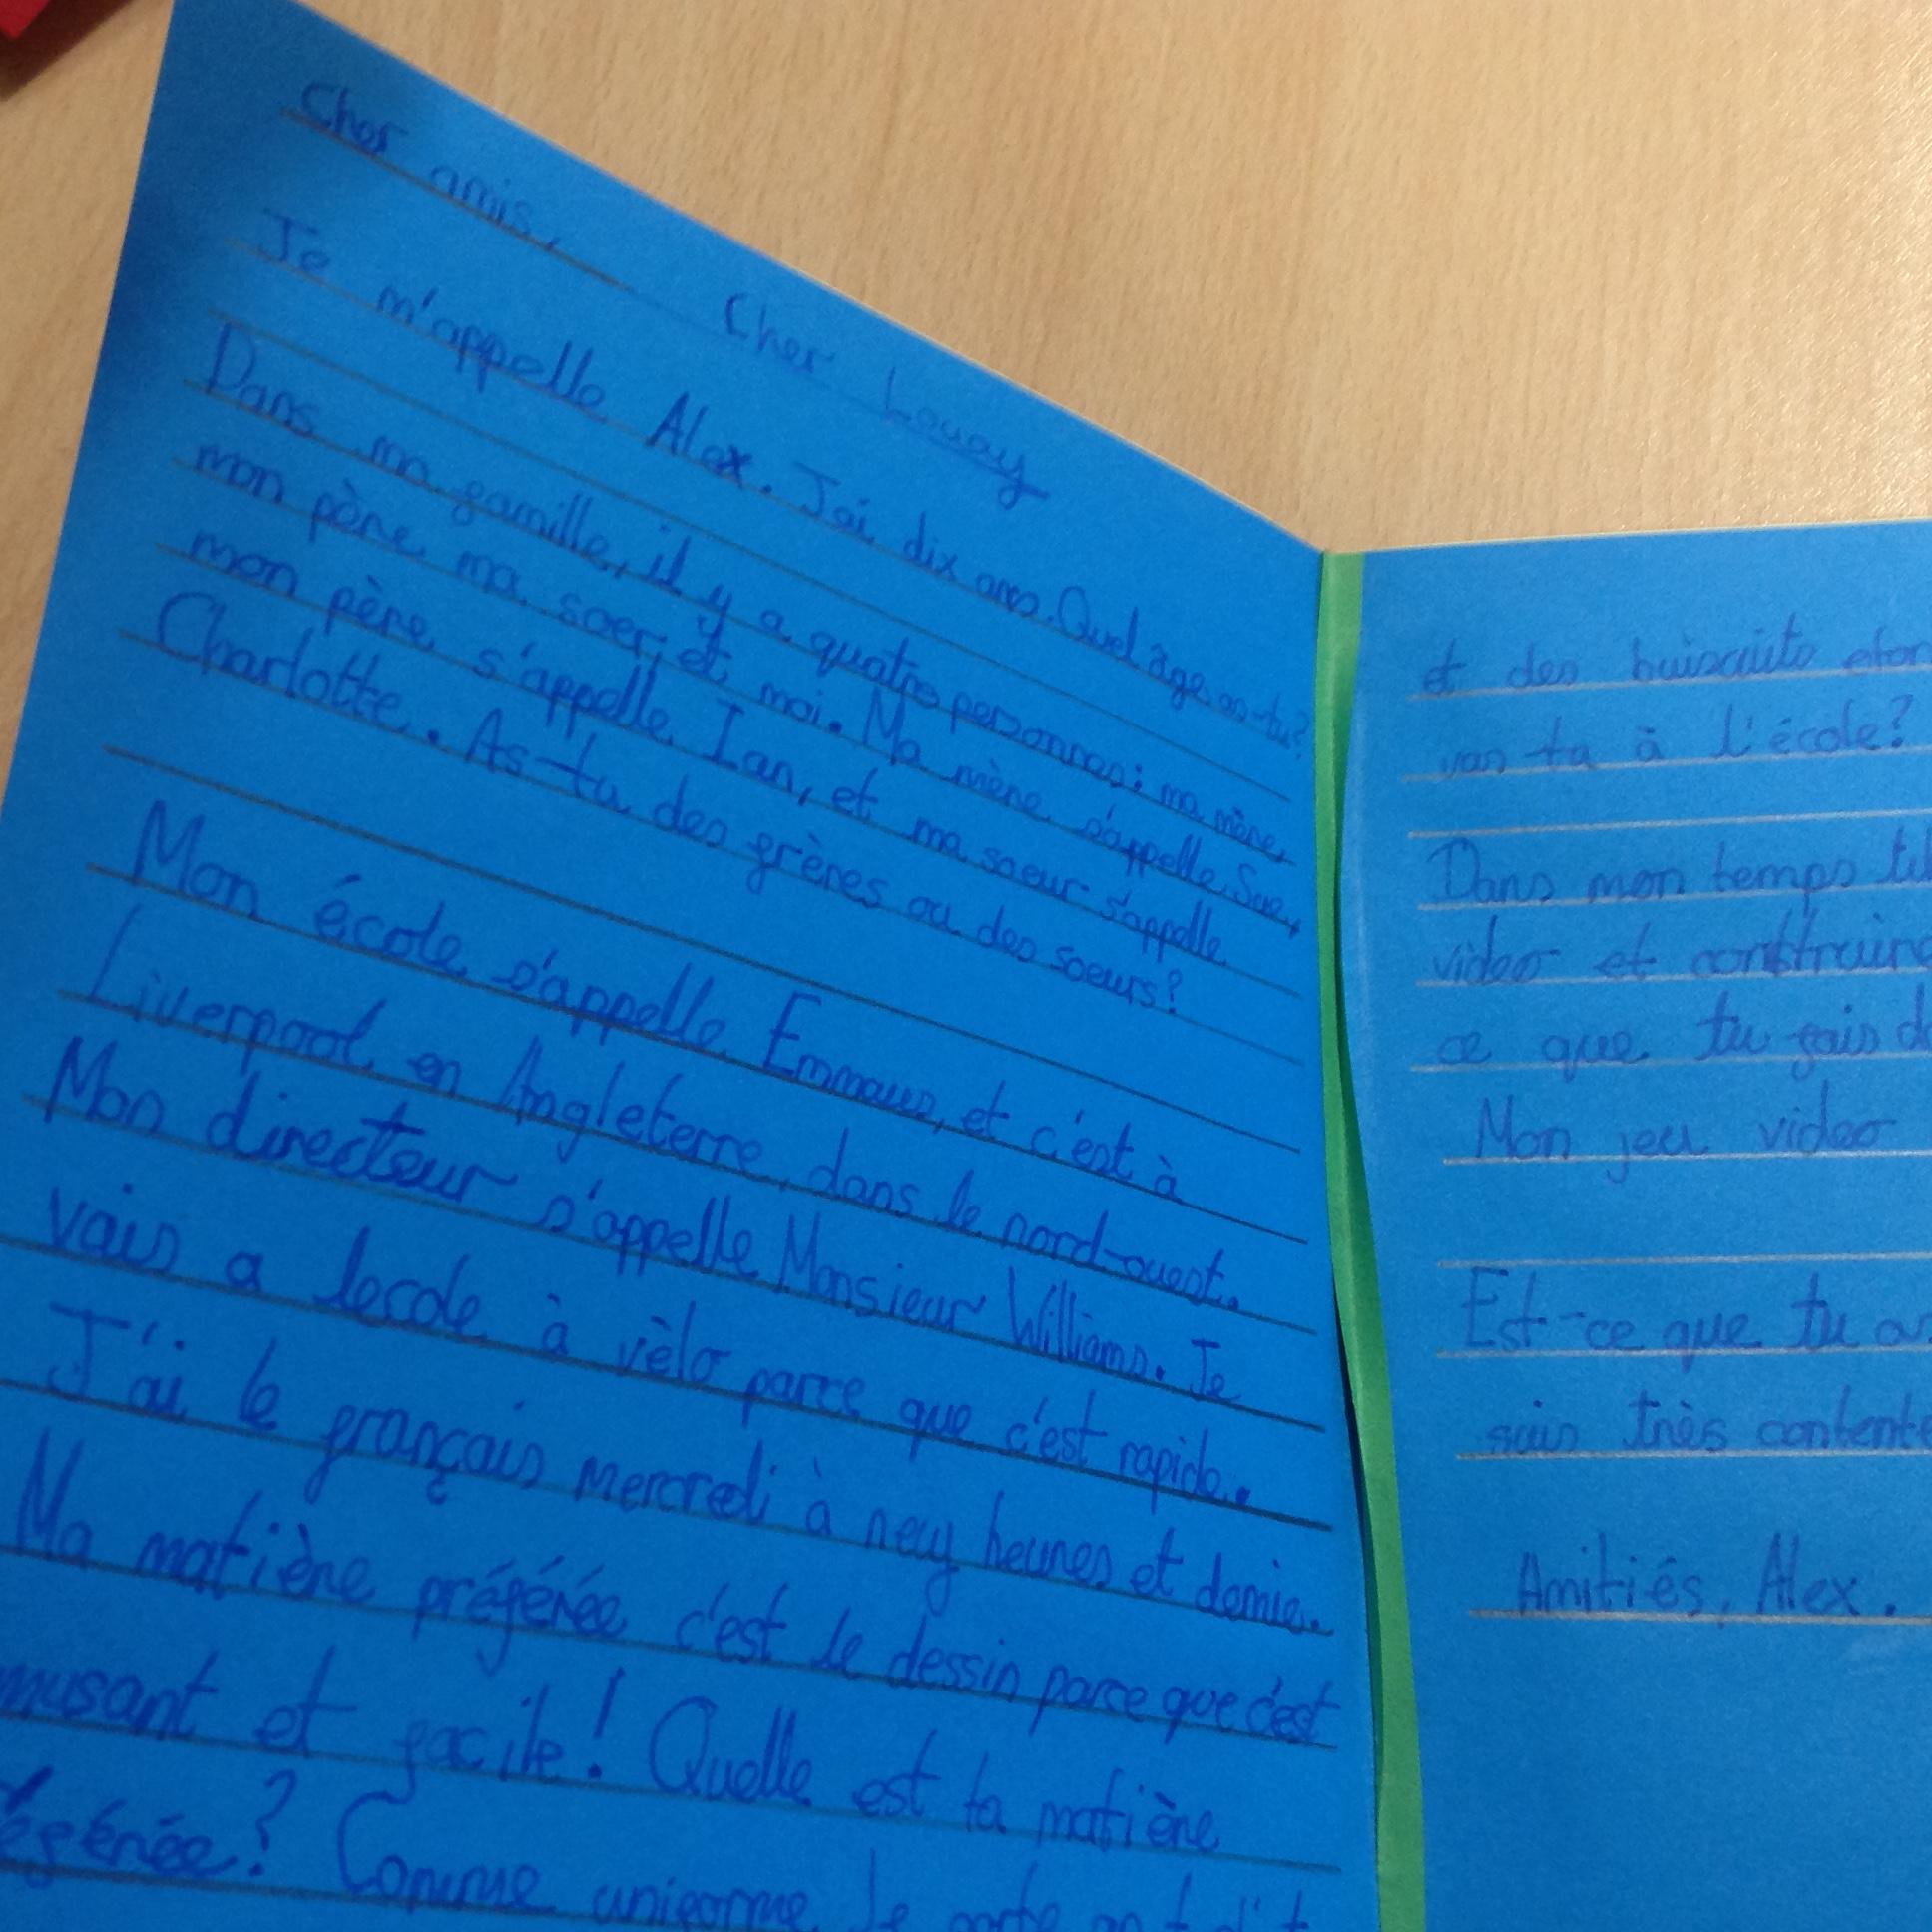 Cher amis, Cher Louay
Je m'appelle Alex. J'ai dix ans. Quel âge as-tu?
Dans ma famille, il y a quatre personnes: ma mère,
mon père, ma soer, et moi. Ma mère s'appelle Sue,
mon père s'appelle Ian, et ma soeur s'appelle
Charlotte. As-tu des frères ou des soeurs?
Mon école s'appelle Emmaus, et c'est à
Liverpool en Angleterre, dans le nord-ouest.
Mon directeur s'appelle Monsieur Williams. Je
vais a lecole à vèlo parce que c'est rapide.
J'ai le français mercredi à neuf heures et demie.
Ma matière préférée c'est le dessin parce que c'est
musant et facile! Quelle est ta matière
éférée? Comme uniforme Je porte
et des
vas-tu à l'école?
Dans mon temps
video et construire
ce que tu fais d
Mon jeu video
Est-ce que tu
suis très contente
Amitiés, Alex.